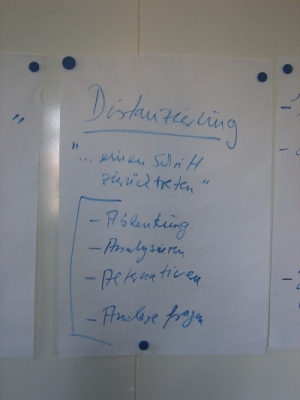 Distanzierung
"... einen Schritt
zurücktreten"
- Ablenkung
- Analysieren
- Alternativen
- Andere fragen